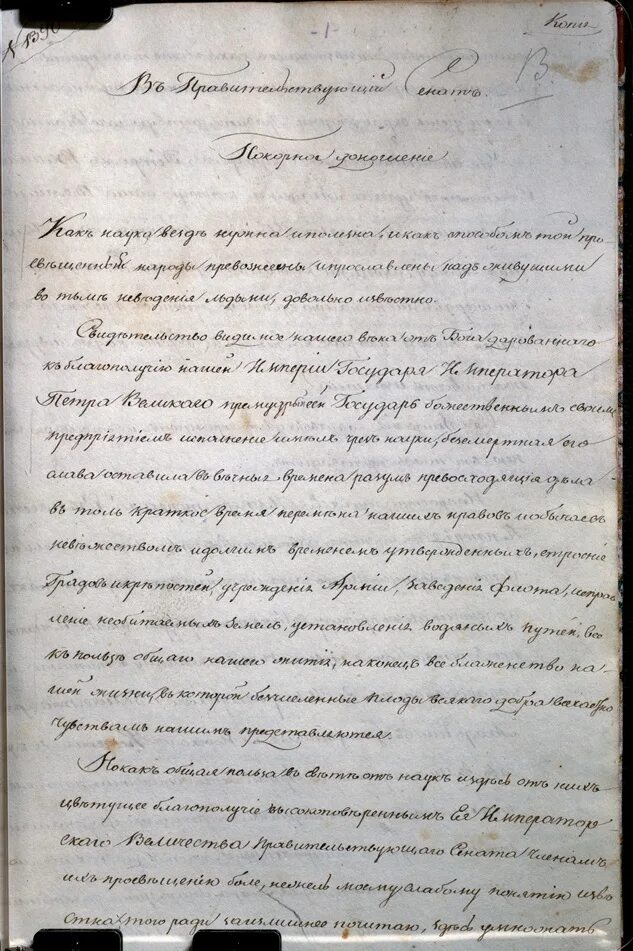 N 1390
-1-
Копія
13.
Въ Правительствующій Сенатъ.
Покорное доношеніе
Какъ наука вездѣ нужна и полезна, и какъ способомъ той про-
свѣщенный народы превознесены и прославлены надъ живущими
во тьмѣ невѣденія людьми, довольно извѣстно.
Свидѣтельство видимое нашего вѣка отъ Бога дарованнаго
къ благополучію нашей Имперіи Государя Императора
Петра Великаго премудрый сей Государь божественнымъ своимъ
предпріятіемъ исполненіе имѣлъ чрезъ науки, безсмертная его
слава оставила въ вѣчныя времена разумъ превосходящія дѣла
въ толь краткое время перемѣна нашихъ нравовъ и обычаевъ
невѣжествомъ и долгимъ временемъ утвержденныхъ, строеніе
Градовъ и крѣпостей, учрежденіе Арміи, заведеніе флота, исправ
леніе необитаемыхъ земель, установленія водяныхъ путей, все
къ пользѣ общаго нашего житія, наконецъ все блаженство на-
шей жизни, въ которой безчисленные плоды всякаго добра всечасно
чувствамъ нашимъ представляются.
Но какъ общая польза въ свѣтѣ отъ наукъ и здѣсь отъ нихъ
цвѣтущее благополучіе высокоповѣреннымъ Ея Император
скаго Величества Правительствующаго Сената членамъ
ихъ просвѣщенію болѣ, нежель моему слабому понятію извѣ
стна, того ради за излишнее почитаю, здѣсь умножать